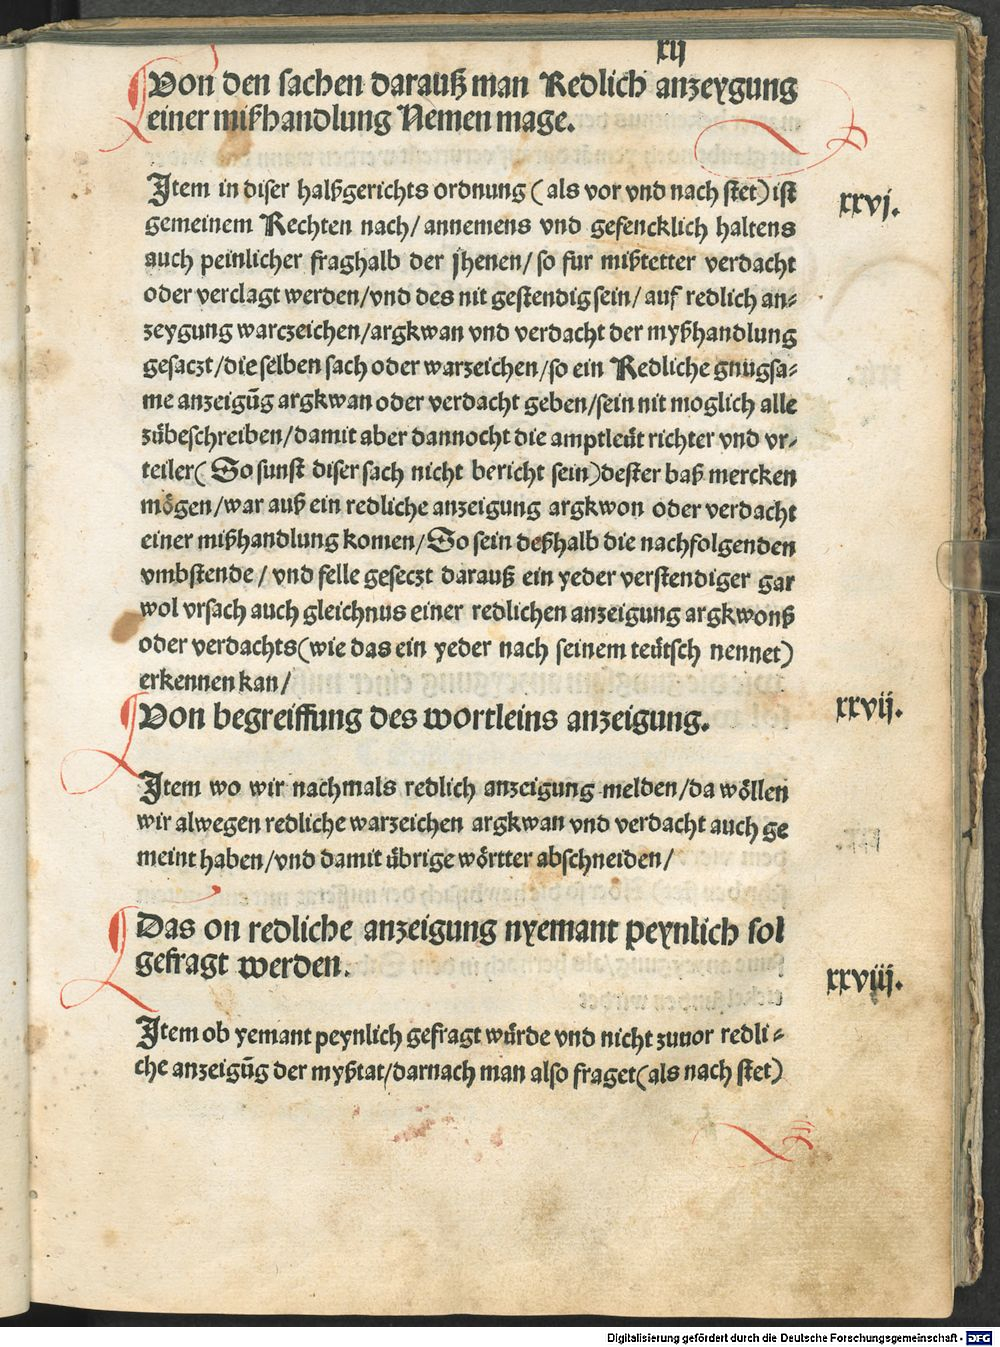 xij
Von den sachen darauß man Redlich anzeygung
einer mißhandlung Nemen mage.
Jtem in diser halßgerichts ordnung ( als vor vnd nach stet) ist
xxvj.
gemeinem Rechten nach/ annemens vnd gefencklich haltens
auch peinlicher fraghalb der jhenen/ so fur mißtetter verdacht
oder verclagt werden/vnd des nit gestendig sein/ auf redlich an⸗
zeygung warczeichen/argkwan vnd verdacht der myßhandlung
gesaczt/die selben sach oder warzeichen/so ein Redliche gnůgsa⸗
me anzeigūg argkwan oder verdacht geben/sein nit moglich alle
zůbeschreiben/damit aber dannocht die amptleůt richter vnd vr⸗
teiler( So sunst diser sach nicht bericht sein)dester baß mercken
mögen/war auß ein redliche anzeigung argkwon oder verdacht
einer mißhandlung komen/So sein deßhalb die nachfolgenden
vmbstende / vnd felle geseczt darauß ein yeder verstendiger gar
wol vrsach auch gleichnus einer redlichen anzeigung argkwonß
oder verdachts(wie das ein yeder nach seinem teůtsch nennet)
erkennen kan/
Von begreiffung des wortleins anzeigung.
xxvij.
Jtem wo wir nachmals redlich anzeigung melden/da wöllen
wir alwegen redliche warzeichen argkwan vnd verdacht auch ge
meint haben/vnd damit übrige wörtter abschneiden/
Das on redliche anzeigung nyemant peynlich sol
gefragt werden.
xxviij.
Jtem ob yemant peynlich gefragt würde vnd nicht zuuor redli⸗
che anzeigūg der myßtat/darnach man also fraget(als nach stet)
Digitalisierung gefördert durch die Deutsche Forschungsgemeinschaft - DFG